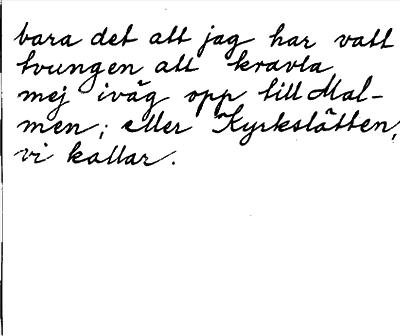 bara det att jag har vatt
tvungen att kravla
mej iväg opp till Mal-
men; eller Kyrkslätten,
vi kallar.